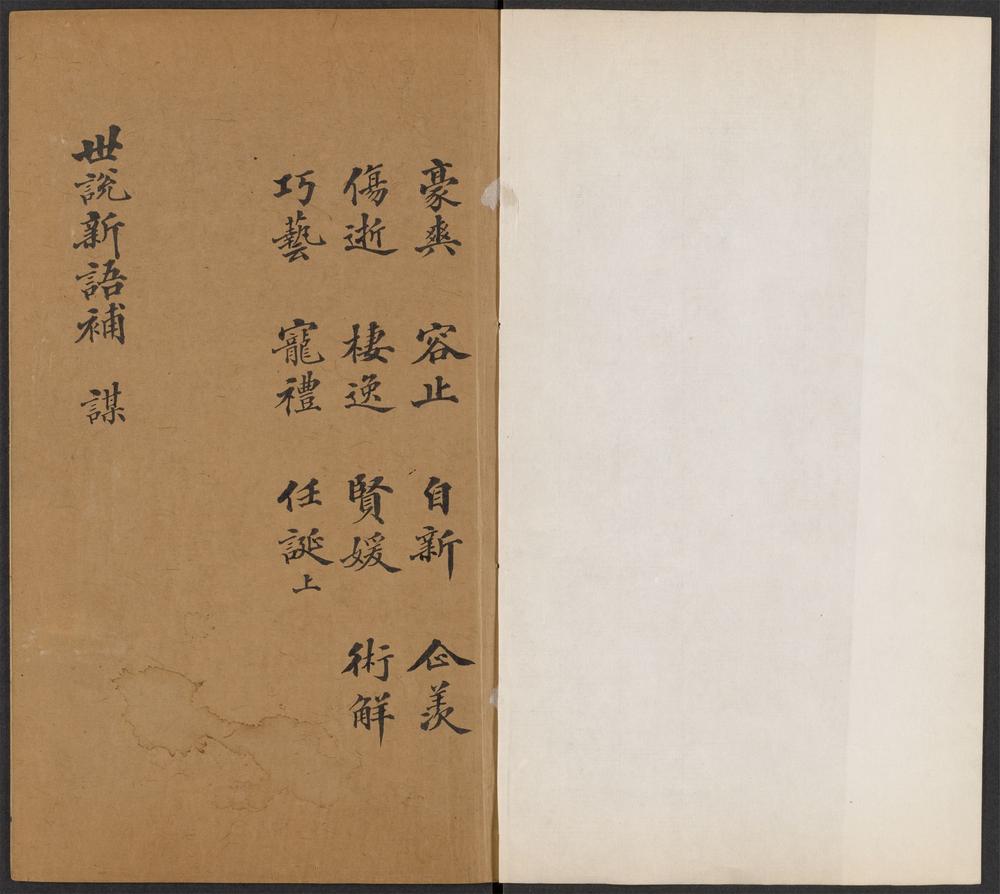 豪爽 容止 自新 企羨
傷逝 棲逸 賢媛 術解
巧藝 寵禮 任誕上
世說新語補 謀